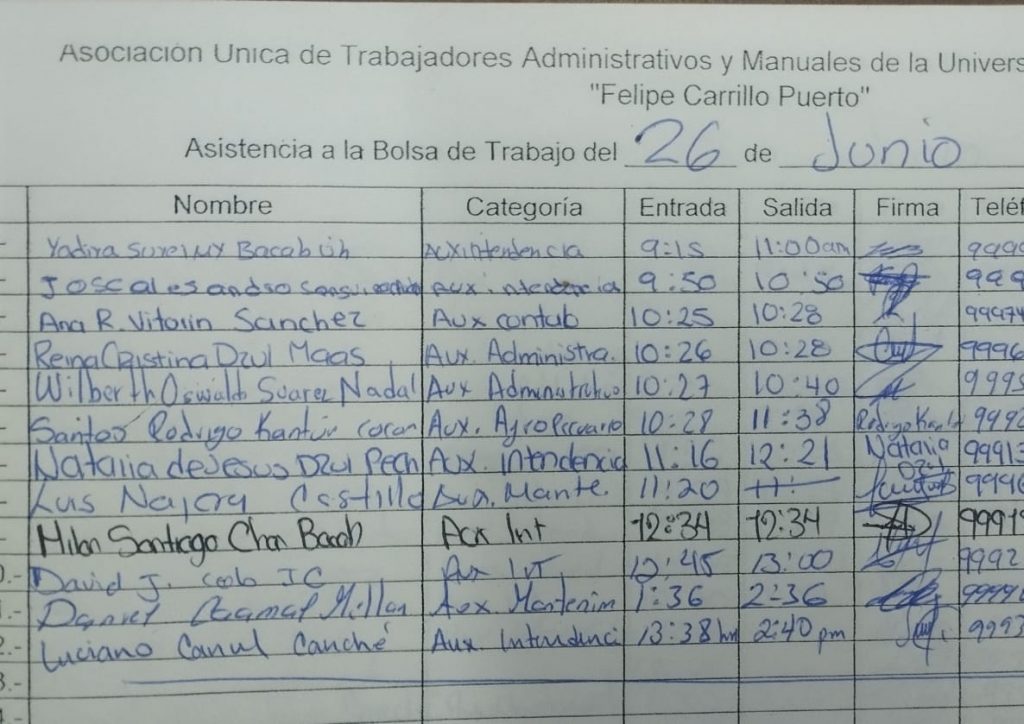 Asociación Unica de Trabajadores Administrativos y Manuales de la Univers
"Felipe Carrillo Puerto"
Asistencia a la Bolsa de Trabajo del 26 de Junio
Nombre Categoría Entrada Salida Firma Teléf
Yadira Bacab Uh Auxintendencia 9:15 11:00am 9999
aux. intendencia 9:50 10:50 999
Ana R. Vitorin Sanchez Aux contab 10:25 10:28 99974
Reina Cristina Dzul Maas Aux. Administra. 10:26 10:28 9996
Wilberth Oswaldo Suarez Nadal Aux Administrativo 10:27 10:40 9999
Santos Rodrigo Kantún Aux. AgroPecuario 10:28 11:38 Rodrigo 9992
Natalia de Jesus Dzul Pech Aux. Intendencia 11:16 12:21 Natalia Dzul 99913
Luis Najera Castillo Aux. Mante. 11:20 11: 9996
Milan Santiago Chan Bacab Aux Int 12:34 12:34 99919
0.- David J. Aux Int 12:45 13:00 9992
1.- Daniel Millan Aux. Mantenim 1:36 2:36 9999
2.- Luciano Canul Canché Aux. Intendenci 13:38 hr 2:40 pm 9993
3.-